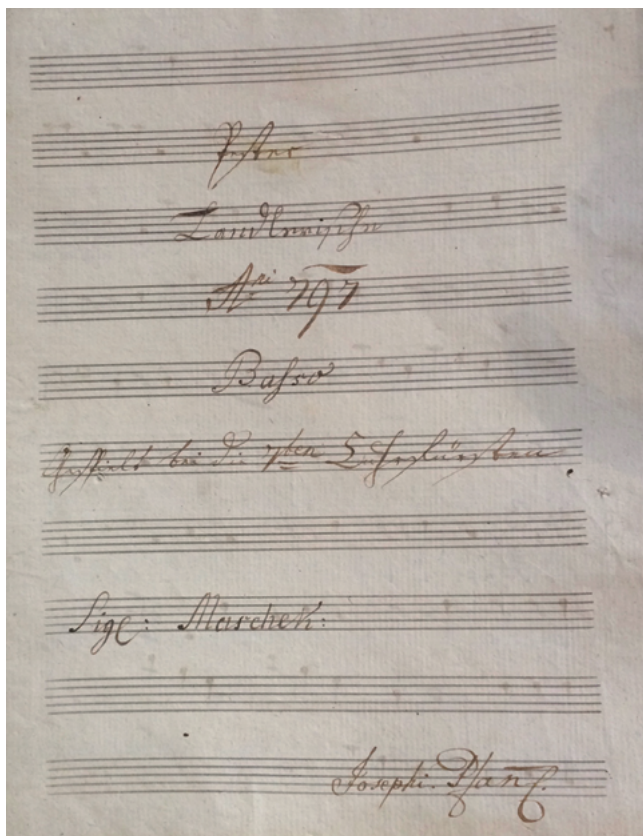 Pester
Landlerische
A:ri 797
Basso
Gespielt bei die 7ben
Sigr: Maschek:
Josephi